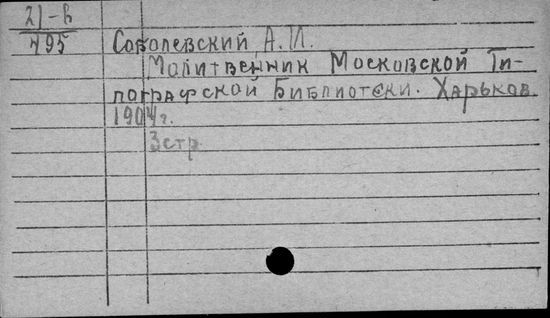 21-в
795
Соболевский А.И.
Молитвенник Московской Ти-
пографской Библиотеки. Харьков.
1904г.
3стр